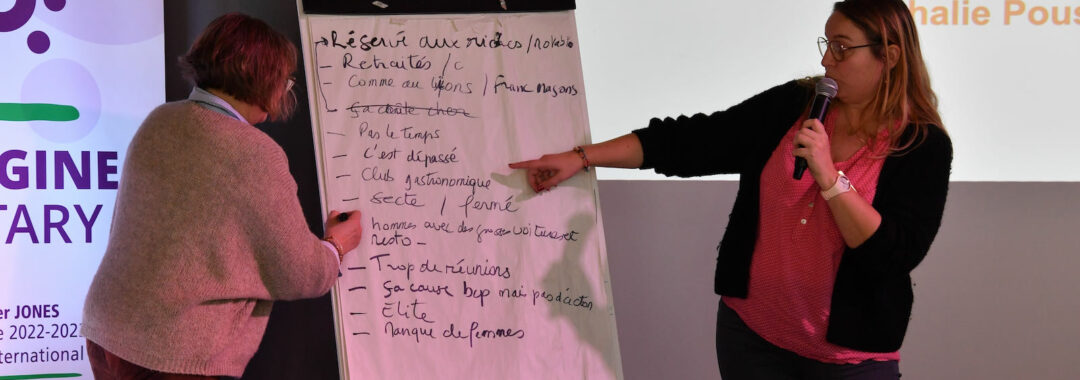 GINE
TARY
er JONES
e 2022-202
nternational
→ Réservé aux riches / notable
- Retraités / c
- Comme au lions / Franc maçons
- ça coûte cher
- Pas le temps
- C'est dépassé
- Club gastronomique
- Secte / fermé
hommes avec des grosses voitures et
resto -
- Trop de réunions
- ça cause bcp mais pas d'action
- Elite
- Manque de femmes
halie Pous